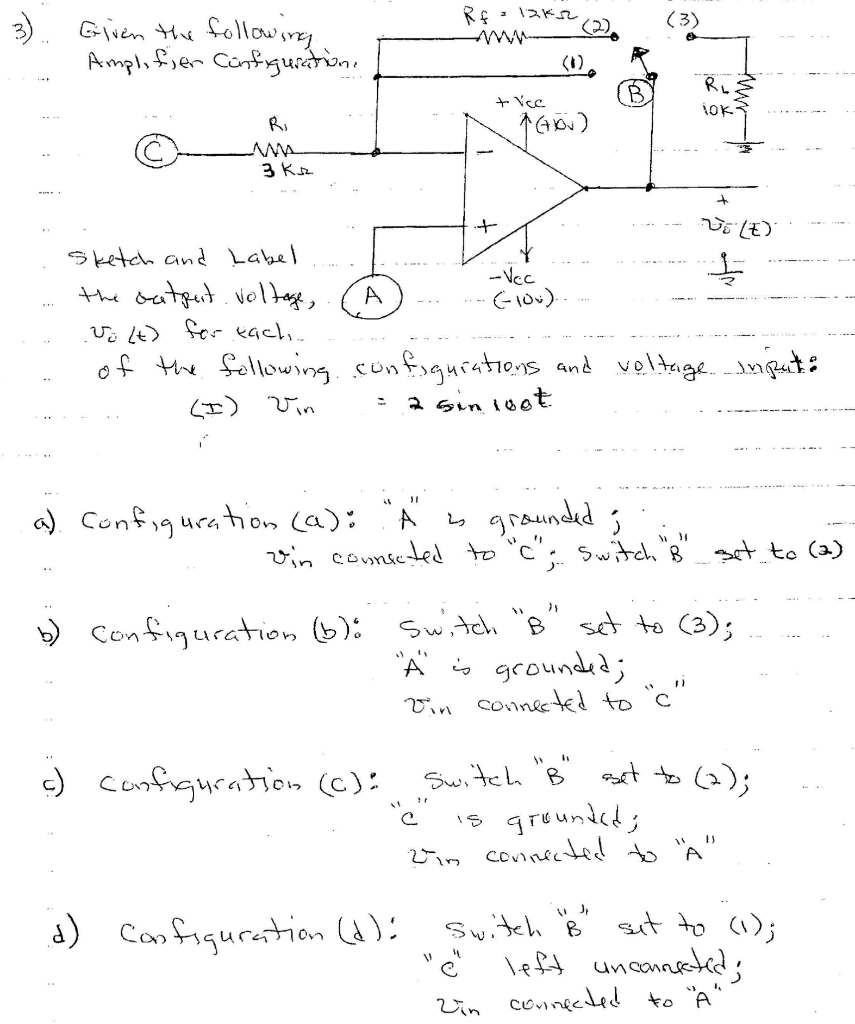 3) Given the following
Amplifier Configuration.
Rf = 12KΩ
(2)
(3)
(1)
B
RL
10K
+Vcc
(+10v)
R1
3 KΩ
C
−
+
+
vo(t)
-
-Vcc
(-10v)
A
Sketch and Label
the output voltage,
vo(t) for each
of the following configurations and voltage input:
(I) Vin = 2 sin 100t
a) Configuration (a): "A" is grounded;
vin connected to "C"; Switch "B" set to (2)
b) Configuration (b): Switch "B" set to (3);
"A" is grounded;
vin connected to "C"
c) Configuration (c): Switch "B" set to (2);
"C" is grounded;
vin connected to "A"
d) Configuration (d): Switch "B" set to (1);
"C" left unconnected;
vin connected to "A"